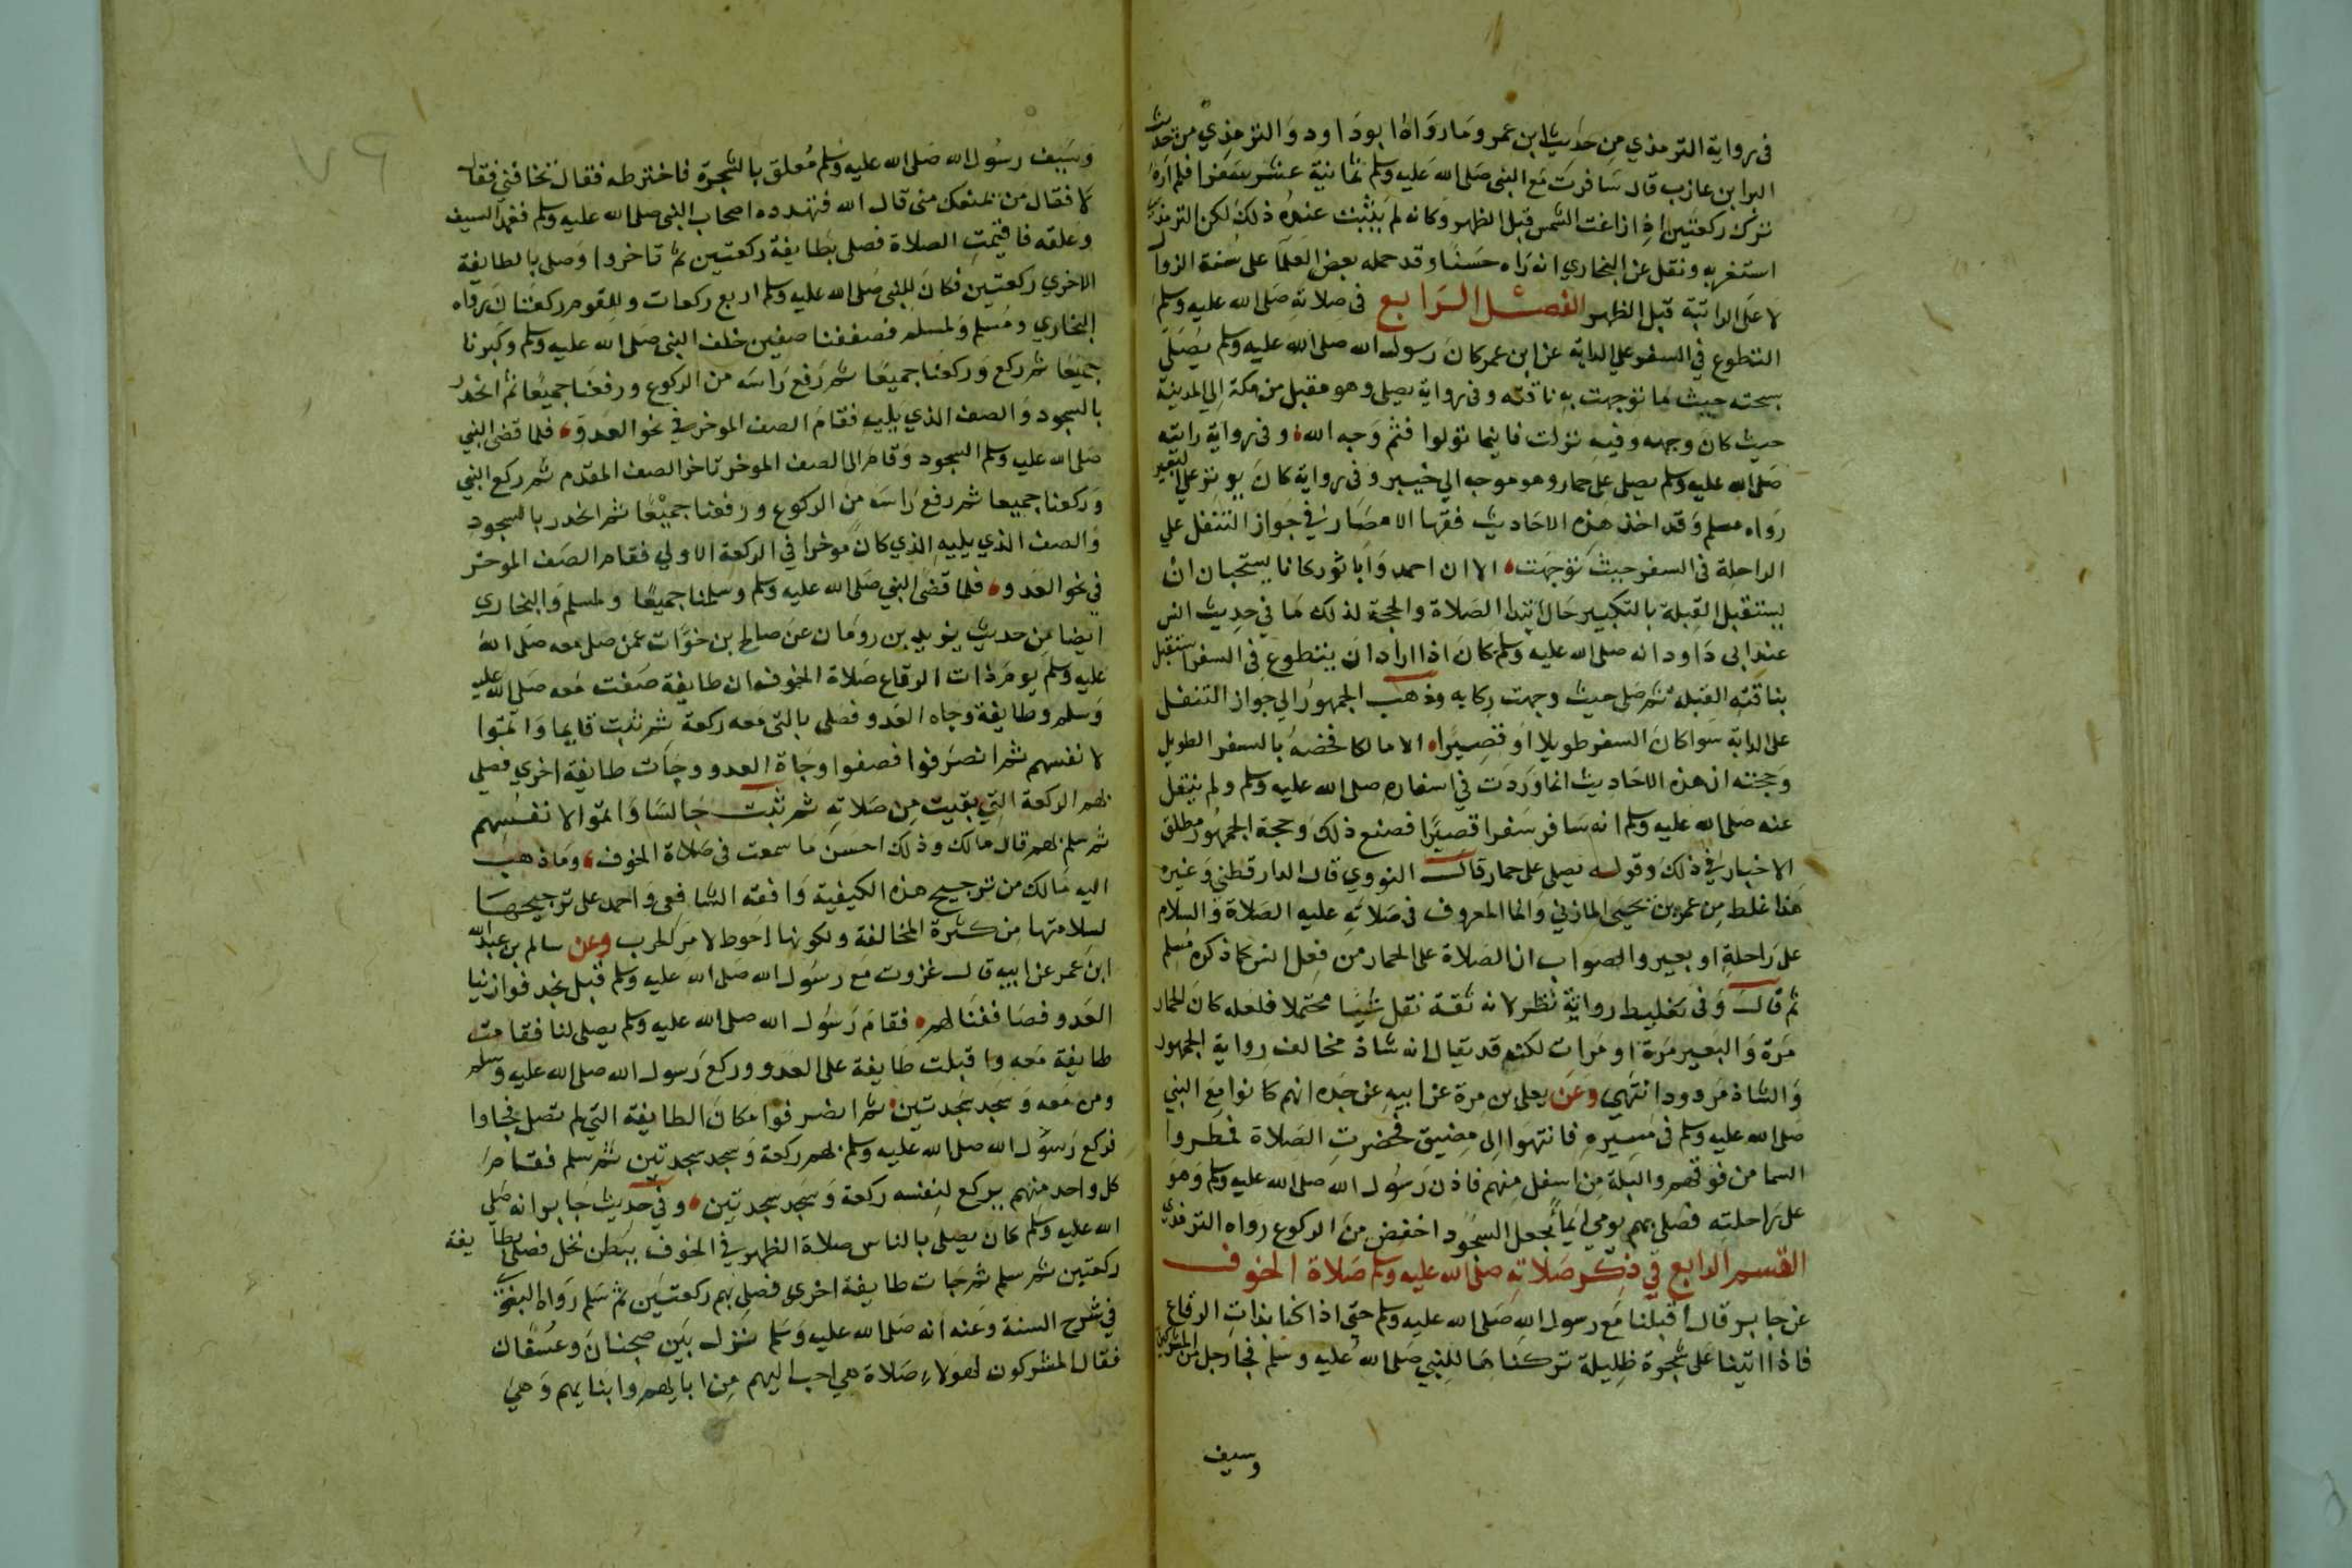 في رواية الترمذي من حديث ابن عمر وما رواه ابو داود والترمذي من حديث
البرا بن عازب قال سافرت مع النبي صلى الله عليه وسلم ثمانية عشر سفرا فلم اره
ترك ركعتين اذا زاغت الشمس قبل الظهر وكانه لم يثبت عنده ذلك لكن الترمذي
استغربه ونقل عن البخاري انه راه حسنا وقد حمله بعض العلما على سنة الزوال
لا على الراتبة قبل الظهر الفصل الرابع في صلاته صلى الله عليه وسلم
التطوع في السفر على الدابة عن ابن عمر كان رسول الله صلى الله عليه وسلم يصلي
سبحته حيث ما توجهت به ناقته وفي رواية يصلي وهو مقبل من مكة الي المدينة
حيث كان وجهه وفيه نزلت فاينما تولوا فثم وجه الله وفي رواية رايته
صلى الله عليه وسلم يصلي على حمار وهو موجه الي خيبر وفي رواية كان يوتر على البعير
رواه مسلم وقد اخذ هذه الاحاديث فقها الامصار في جواز التنفل علي
الراحلة في السفر حيث توجهت الا ان احمد وابا ثور كانا يستحبان ان
يستقبل القبلة بالتكبير حال ابتدا الصلاة والحجة لذلك ما في حديث انس
عند ابي داود انه صلى الله عليه وسلم كان اذا اراد ان يتطوع في السفر استقبل
بناقته القبلة ثم صلى حيث وجهت ركابه وذهب الجمهور الي جواز التنفل
على الدابة سوا كان السفر طويلا او قصيرا الا مالكا فخصه بالسفر الطويل
وحجته ان هذه الاحاديث انما وردت في اسفاره صلى الله عليه وسلم ولم ينقل
عنه صلى الله عليه وسلم انه سافر سفرا قصيرا فصنع ذلك وحجة الجمهور مطلق
الاخبار في ذلك وقوله يصلي على حمار قال النووي قال الدارقطني وغيره
هذا غلط من عمرو بن يحيى المازني وانما المعروف في صلاته عليه الصلاة والسلام
على راحلة او بعير والصواب ان الصلاة على الحمار من فعل انس كما ذكره مسلم
ثم قال وفي تغليط رواية نظر لانه ثقة نقل شيا محتملا فلعله كان الحمار
مرة والبعير مرة او مرات لكنه قد يقال انه شاذ مخالف رواية الجمهور
والشاذ مردود انتهي وعن يعلى بن مرة عن ابيه عن جده انهم كانوا مع النبي
صلى الله عليه وسلم في مسيره فانتهوا الي مضيق فحضرت الصلاة فمطروا
السما من فوقهم والبلة من اسفل منهم فاذن رسول الله صلى الله عليه وسلم وهو
على راحلته فصلى بهم يومي ايما يجعل السجود اخفض من الركوع رواه الترمذي
القسم الرابع في ذكر صلاته صلى الله عليه وسلم صلاة الخوف
عن جابر قال اقبلنا مع رسول الله صلى الله عليه وسلم حتى اذا كنا بذات الرقاع
فاذا اتينا على شجرة ظليلة تركناها للنبي صلى الله عليه وسلم فجا رجل من المشركين
وسيف
٧٩
وسيف رسول الله صلى الله عليه وسلم معلق بالشجرة فاخترطه فقال تخافني فقال
لا فقال من يمنعك مني قال الله فتهدده اصحاب النبي صلى الله عليه وسلم فغمد السيف
وعلقه فاقيمت الصلاة فصلى بطايفة ركعتين ثم تاخروا وصلى بالطايفة
الاخري ركعتين فكان للنبي صلى الله عليه وسلم اربع ركعات وللقوم ركعتان رواه
البخاري ومسلم ولمسلم فصففنا صفين خلف النبي صلى الله عليه وسلم وكبرنا
جميعا ثم ركع وركعنا جميعا ثم رفع راسه من الركوع ورفعنا جميعا ثم انحدر
بالسجود والصف الذي يليه فقام الصف الموخر في نحو العدو فلما قضى النبي
صلى الله عليه وسلم السجود وقام الى الصف الموخر تاخر الصف المقدم ثم ركع النبي
وركعنا جميعا ثم رفع راسه من الركوع ورفعنا جميعا ثم انحدر بالسجود
والصف الذي يليه الذي كان موخرا في الركعة الاولي فقام الصف الموخر
في نحو العدو فلما قضى النبي صلى الله عليه وسلم وسلمنا جميعا ولمسلم والبخاري
ايضا من حديث يزيد بن رومان عن صالح بن خوات عمن صلى معه صلى الله
عليه وسلم يوم ذات الرقاع صلاة الخوف ان طايفة صفت معه صلى الله عليه
وسلم وطايفة وجاه العدو فصلى بالتي معه ركعة ثم ثبت قايما واتموا
لانفسهم ثم انصرفوا فصفوا وجاة العدو وجات طايفة اخري فصلي
بهم الركعة التي بقيت من صلاته ثم ثبت جالسا واتموا لانفسهم
ثم سلم بهم قال مالك وذلك احسن ما سمعت في صلاة الخوف وما ذهب
اليه مالك من ترجيح هذه الكيفية وافقه الشافعي واحمد على ترجيحها
لسلامتها من كثرة المخالفة ولكونها احوط لامر الحرب وعن سالم بن عبد الله
ابن عمر عن ابيه قال غزوت مع رسول الله صلى الله عليه وسلم قبل نجد فوازنيا
العدو فصاففنا لهم فقام رسول الله صلى الله عليه وسلم يصلي لنا فقامت
طايفة معه واقبلت طايفة على العدو وركع رسول الله صلى الله عليه وسلم
ومن معه وسجد سجدتين ثم انصرفوا مكان الطايفة التي لم تصل فجاوا
فركع رسول الله صلى الله عليه وسلم بهم ركعة وسجد سجدتين ثم سلم فقام
كل واحد منهم يركع لنفسه ركعة وسجد سجدتين وفي حديث جابر انه صلي
الله عليه وسلم كان يصلي بالناس صلاة الظهر في الخوف ببطن نخل فصلى بطايفة
ركعتين ثم سلم ثم جات طايفة اخرى فصلى بهم ركعتين ثم سلم رواه البغوي
في شرح السنة وعنه انه صلى الله عليه وسلم نزل بين ضجنان وعسفان
فقال المشركون لهولاء صلاة هي احب اليهم من ابايهم وابنايهم وهي